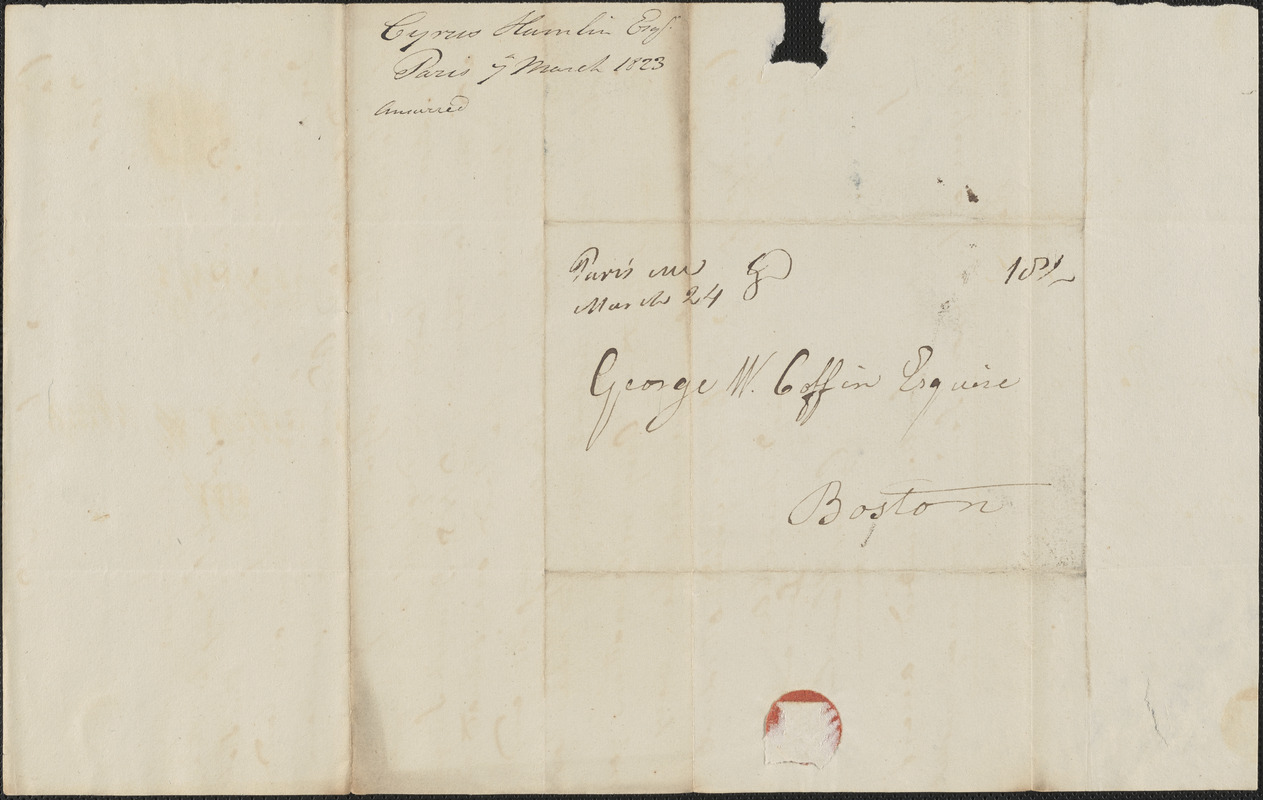 Cyrus Hamlin Esqr.
Paris 7 March 1823
Answered
Paris Me
March 24
18½
George W. Coffin Esquire
Boston